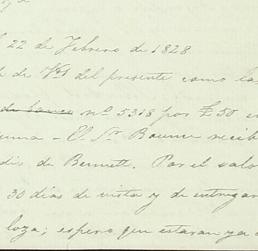 22 de Febrero de 1828
del presente como la
de banco nº 5318 por £50 en
El Sr. Bounen recib
de Bennett. Por el sal
30 dias de vista y de entregar
loza; espero que estaran ya